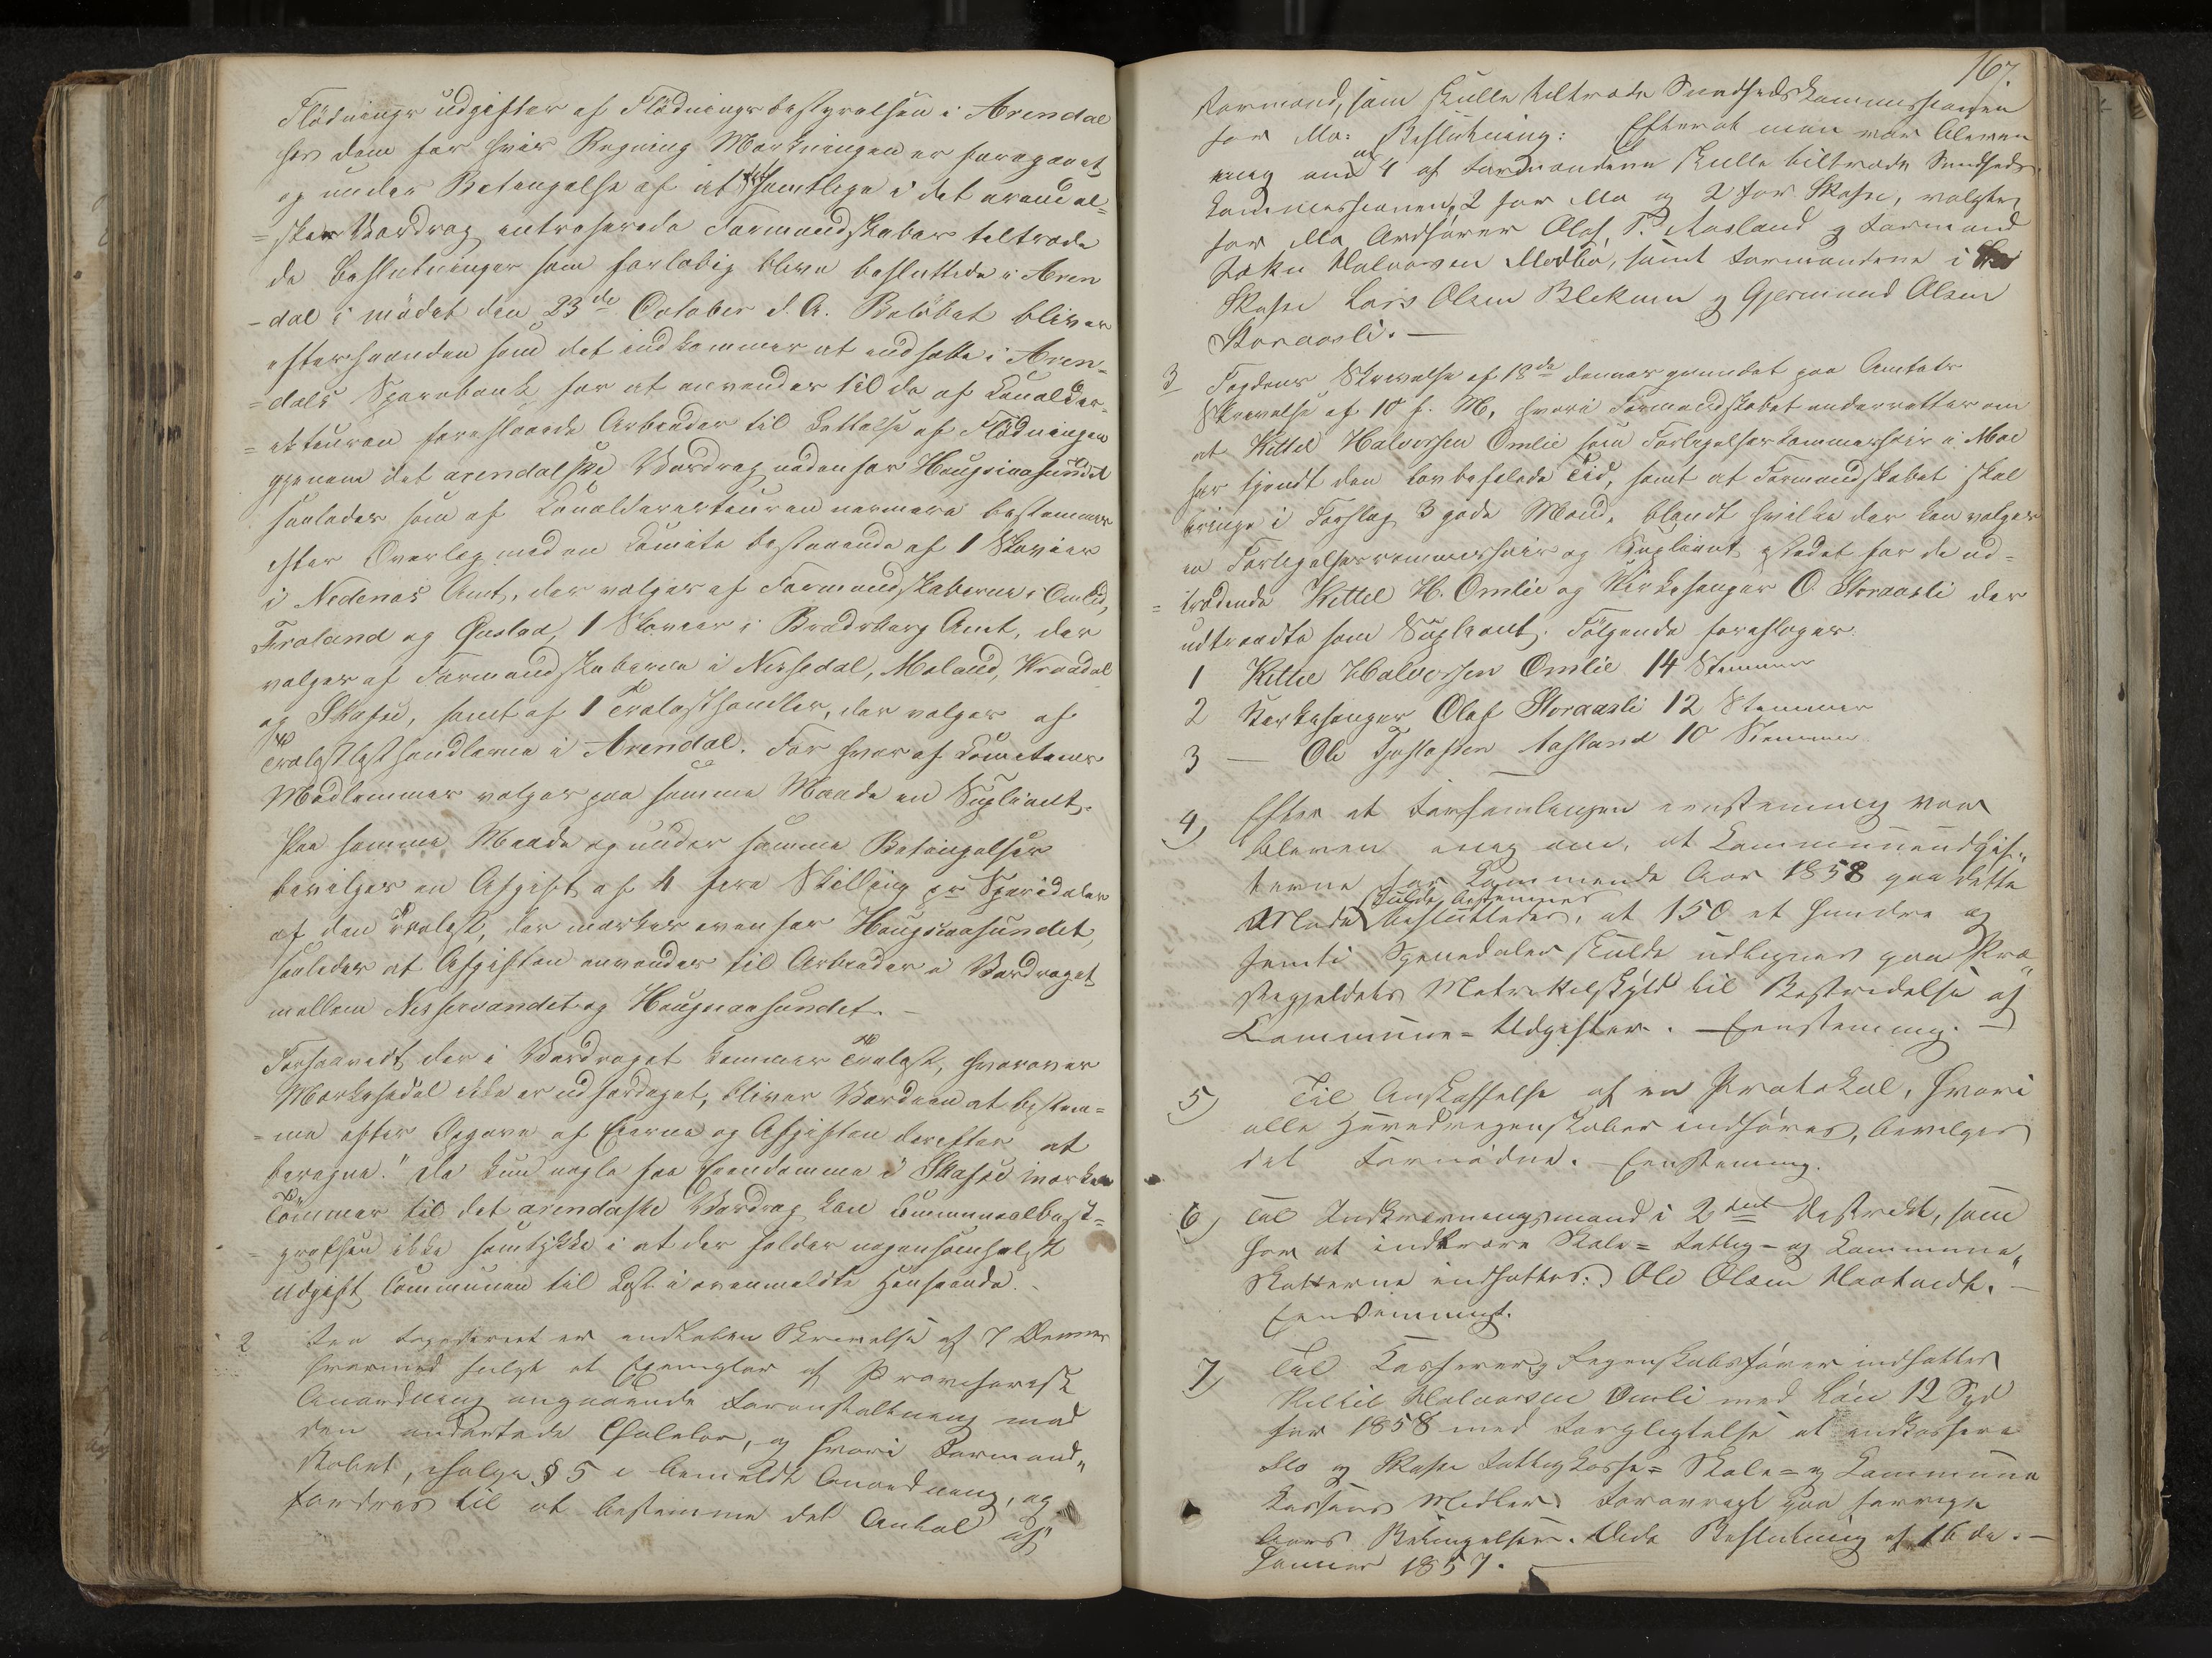 Flødnings udgifter af Flødningsbestyrelsen i Arendal
hos dem for hvis Regning Mærkningen er foregaaet
og under Betingelse af at samtlige i det arendal=
=ske Vasdrag intreserede Formandskaber tiltræde
de Beslutninger som forløbig bleve besluttede i Aren
-dal i mødet den 23de October d. A. Beløbet bliver
efterhaanden som det indkommer at indsætte i Aren=
=dals Sparebank for at anvendes til de af Canaldir=
=ekteuren foreslaaede Arbeider til Lettelse af Flødningen
gjennem det arendalske Vasdrag nedenfor Haugsiaasundet
saaledes som af Canaldirecteuren nærmere bestemmes
efter Overleg med en Comite bestaaende af 1 Skoveier
i Nedenæs Amt, der vælges af Formandskaberne i Omlid,
Froland og Øiestad, 1 Skoveier i Bradsberg Amt, der
vælges af Formandskaberne i Nissedal, Moland, Hvidesei
og Skafse, samt af 1 Trælasthandler, der vælges af
Trælasthandlerne i Arendal. For hver af Comiteens
Medlemmer vælges paa samme Maade en Supleant.
Paa samme Maade og under samme Betingelser
bevilges en Afgift af 4 fire Skilling pr Speciedaler
af den Trælast, der mærkes ovenfor Haugsiaasundet,
saaledes at Afgiften anvendes til Arbeider i Vasdraget
mellem Nisservandet og Haugsiaasundet. -
Forsaavidt der i Vasdraget kommer Trælast, hvorover
Mærkesedel ikke er udfærdiget, bliver Værdien at bestem=
=me efter Opgave af Eierne og Afgiften derefter at
beregne." Da kun nogle faa Eiendomme i Skafse mærker
Tømmer til det arendalske Vasdrag kan Communalbest=
=yrelsen ikke samtykke i at der falder nogensomhelst
Udgift Communen til Last i ovenmeldte Henseende. -
2 Fra Fogderiet er indløben Skrivelse af 7 Dennes
hvormed fulgte et Exemplar af Provisorisk
Anordning angaaende Foranstaltning mod
den indartede Cholera, og hvori Formand„
skabet, ifølge § 5 i bemeldte Anordning, op
fordres til at bestemme det Antal af
167.
Formænd, som skulle tiltræde Sundhedskommissionen
for Mo: Beslutning: Efterat man var bleven
enig om at 4 af Formændene skulle tiltræde Sundheds-
kommissionen, 2 for Mo og 2 for Skafse, valgtes
for Mo Ordfører Olaf T. Aasland og Formand
Halvorsen Modbø, samt Formændene i
Skafse Lars Olsen Blekum og Gjermund Olsen
Storaasli. —
3 Fogdens Skrivelse af 18de dennes grundet paa Amtets
Skrivelse af 10 f. M, hvori Formandskabet underrettes om
at Kittel Halvorsen Omlie som Forligelseskommissair i Moe
har tjendt den lovbefalede Tid, samt at Formandskabet skal
bringe i Forslag 3 gode Mænd, blandt hvilke der kan vælges
en Forligelsescommissair og Supleant istedet for de ud=
=trædende Kittel H. Omlie og Kirkesanger O. Storaasli der
udtraadte som Supleant. Følgende foreslages:
1 Kittel Halvorsen Omlie 14 Stemmer
2 Kirkesanger Olaf Storaasli 12 Stemmer
3 — Ole Aasland 10 Stemmer.
4, Efter at Forsamlingen eenstemmig var
bleven enig om, at Kommuneudgif„
terne for kommende Aar 1858 paa dette
Møde skulde bestemmes besluttedes, at 150 et hundre og
femti Speciedaler skulde udlignes paa Præ
stegjeldets Matrikelskyld til Bestridelse af
Commune-Udgifter. — Eenstemmig. —
5, Til Anskaffelse af en Protokol, hvori
alle Herredregenskaber indføres, bevilges
det Fornødne. Eenstemmig.
6, Til Indkrævningsmand i 2det Distrikt, som
har at indkræve Skole- Fattig- og Kommune„
Skatterne indsattes: Ole Olsen —
Eenstemmigt.
7, Til Kasserer og Regenskabsfører indsattes
Kittil Halvorsen Omli med Løn 12 Spd
for 1858 med Forpligtelse at indkassere
Mo og Skafse Fattigkasse= Skole= og Kommune
Kassens Midler. Forøvrigt paa forrige
Aars Betingelser. Vide Beslutning af 16de. —
Januar 1857. —